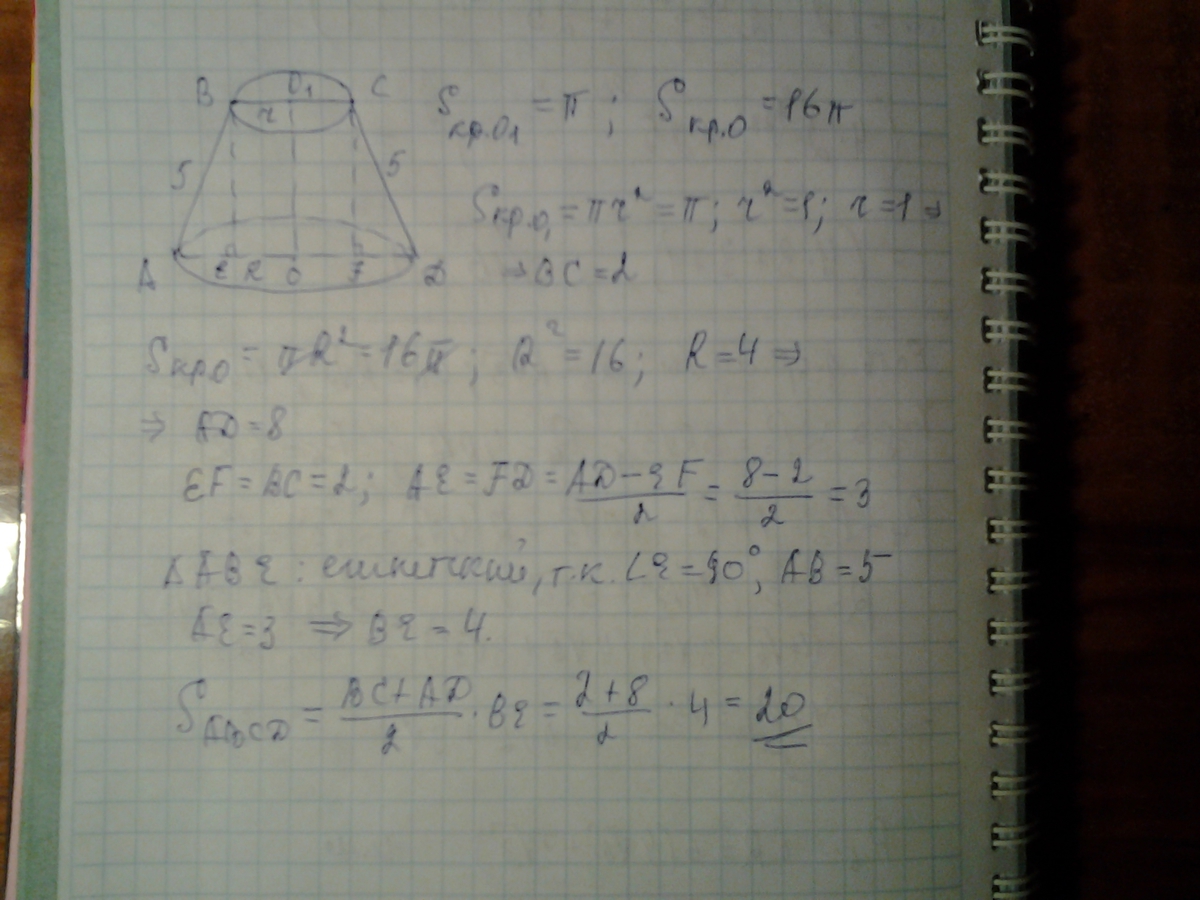 B O₁ C
r
5 5
A E R O F D
Sкр.O₁ = π ; Sкр.O = 16π
Sкр.O₁ = πr² = π; r² = 1; r = 1 ⇒
⇒ BC = 2
Sкр.O = πR² = 16π ; R² = 16 ; R = 4 ⇒
⇒ AD = 8
EF = BC = 2; AE = FD = (AD − EF)/2 = (8 − 2)/2 = 3
Δ ABE : египетский, т.к. ∠E = 90°, AB = 5
AE = 3 ⇒ BE = 4.
SABCD = (BC + AD)/2 · BE = (2 + 8)/2 · 4 = 20